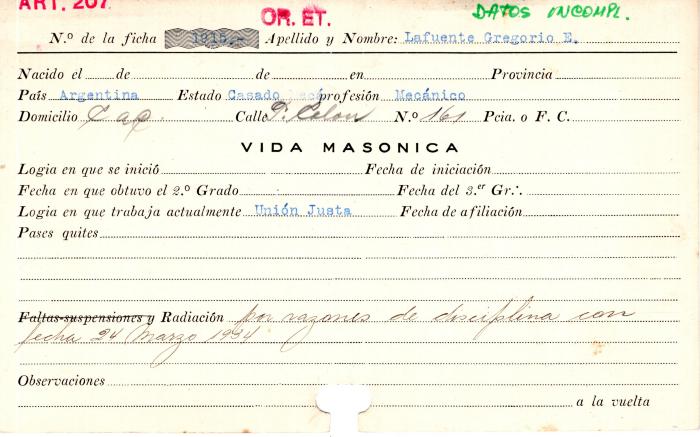 ART. 207
OR. ET.
DATOS INCOMPL.
N.º de la ficha 1915.- Apellido y Nombre: Lafuente Gregorio E.
Nacido el de de en Provincia
País Argentina Estado Casado profesión Mecánico
Domicilio Calle P. Colon N.º 161 Pcia. o F. C.
VIDA MASONICA
Logia en que se inició Fecha de iniciación
Fecha en que obtuvo el 2.º Grado Fecha del 3.er Gr∴
Logia en que trabaja actualmente Unión Justa Fecha de afiliación
Pases quites
Faltas-suspensiones y Radiación por razones de disciplina con
fecha 24 Marzo 1934
Observaciones
a la vuelta